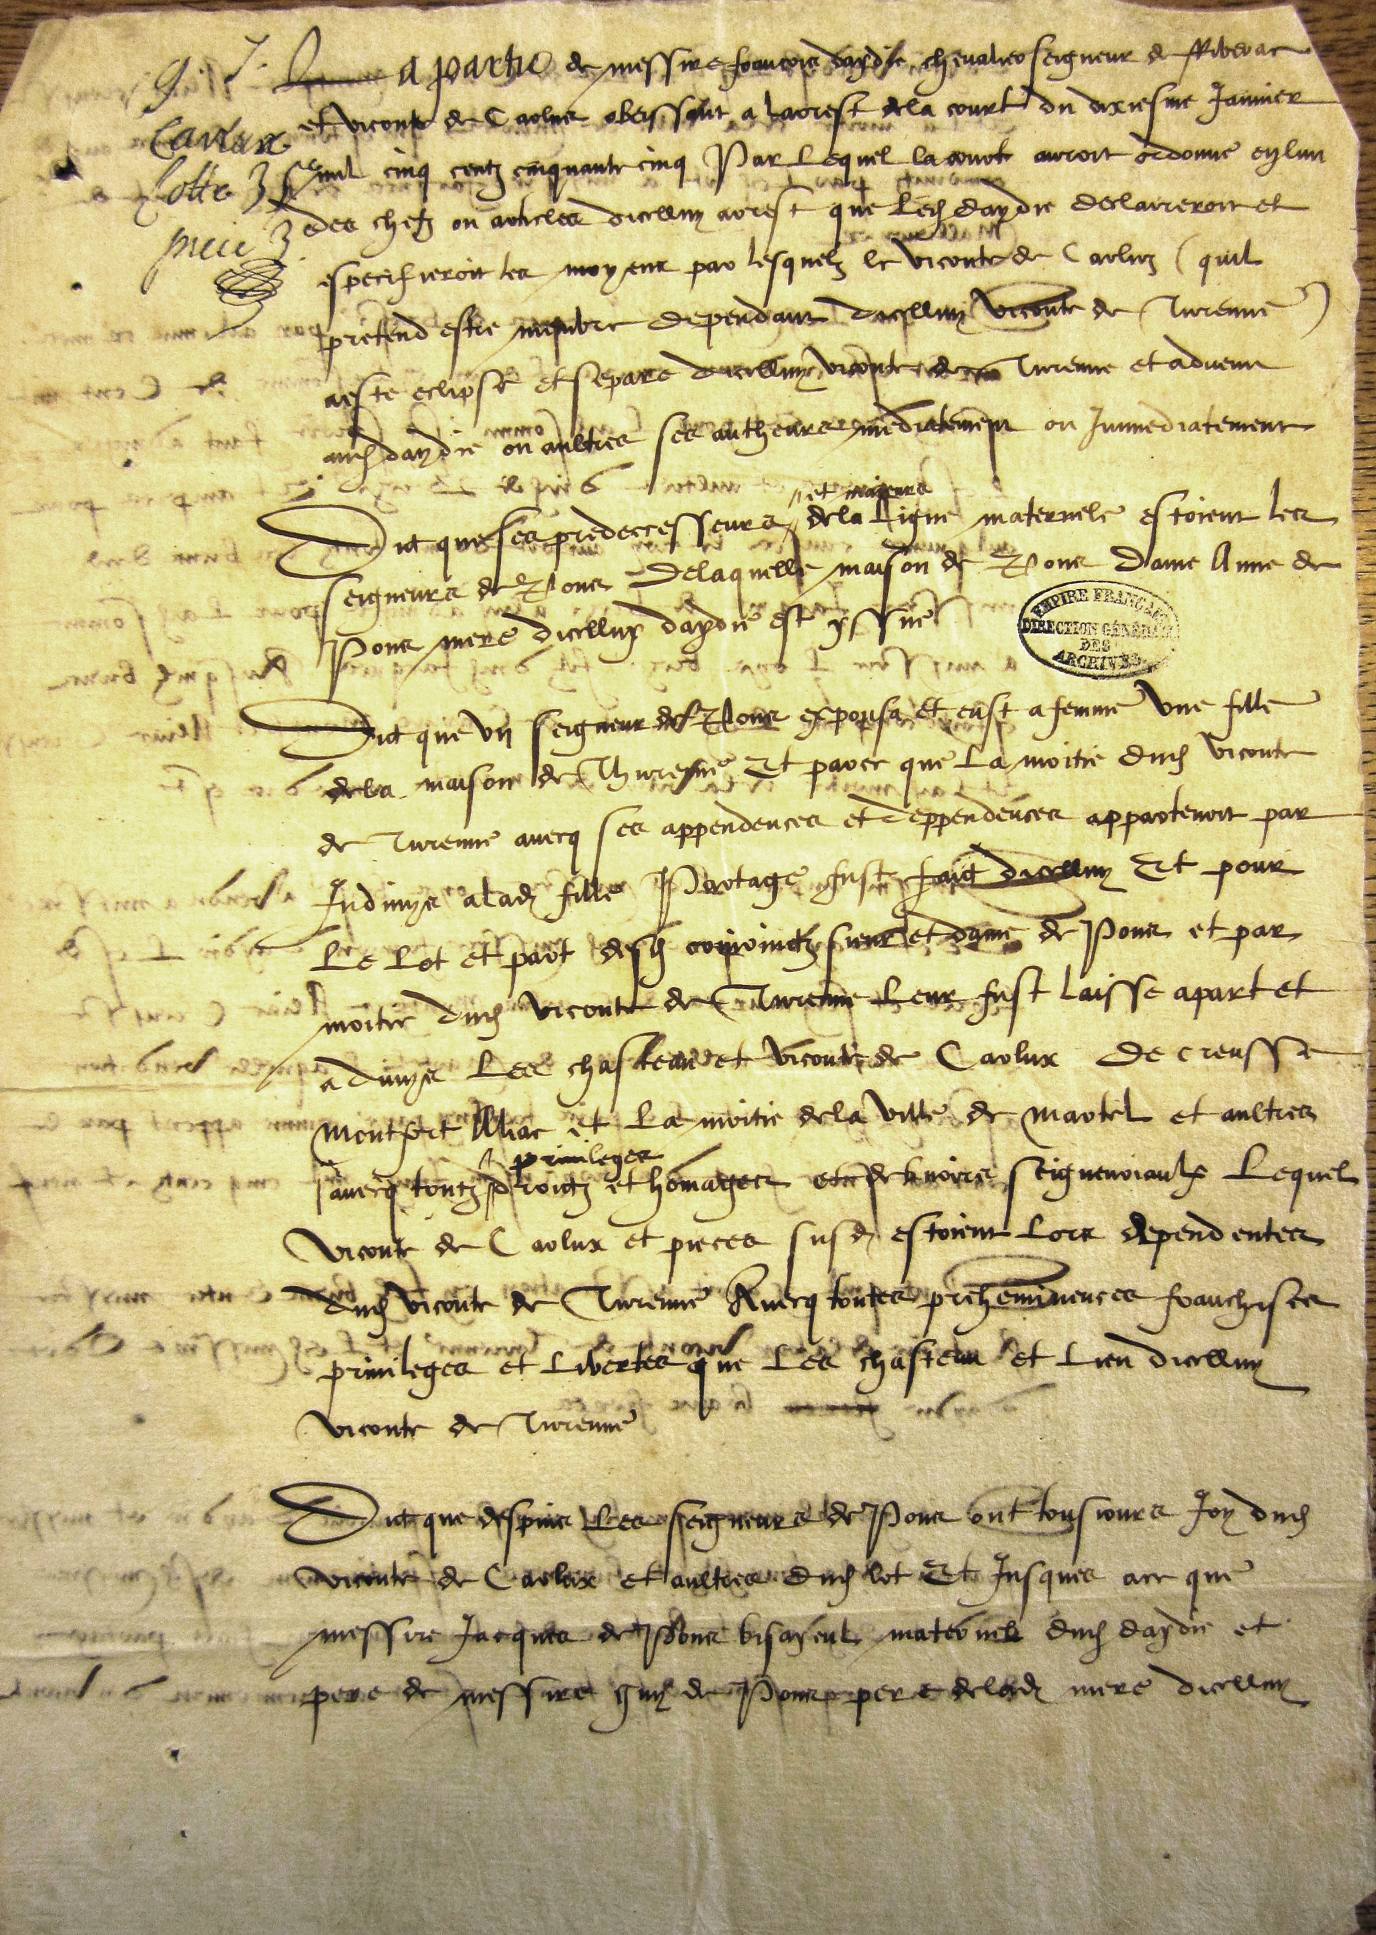 g. 7.
Carlux
Cotte 3
piece 3
a partie de messire francois daydie chevalier seigneur de Riberac
et viconte de Carlux obeissant a larrest de la court du dixiesme Janvier
mil cinq centz cinquante cinq Par lequel la court auroit ordonne en lun
des chefz ou articles dicelluy arrest que led daydie declarreroit et
especifieroit les moyens par lesquelz le viconte de Carlux (quil
pretend estre membre dependant dicelluy viconte de Turenne)
a este eclipse et separe dicelluy viconte de Turenne et advenu
aud daydie ou aultres ses autheurs mediatement ou Immediatement
et majeurs
Dit que ses predeccesseurs de la ligne maternele estoient les
seigneurs de Pons De laquelle maison de Pons Dame Anne de
Pons mere dicelluy daydie est yssue
EMPIRE FRANÇAIS
DIRECTION GÉNÉRALE
DES
ARCHIVES
Dit que un seigneur de Pons expousa et eust a femme une fille
de la maison de Thurenne Et parce que la moitie dud viconte
de Turenne avecq ses appendences et deppendences appartenoit par
Indivys a lad fille Partage fust faict dicelluy Et pour
le lot et part desd conjoinctz sieur et dame de Pons et par
moitie dud viconte de Turenne leur fust laisse apart et
a divys les chasteau et viconte de Carlux De creusse
Montfort Alliac et la moitie de la ville de Martel et aultres
privileges
avecq toutz droictz et homages et debvoirs seigneuriaulx Lequel
viconte de Carlux et pieces susd estoient lors dependentes
dud viconte de Turenne Avecq toutes preheminences franchises
privileges et libertes que les chasteau et lieu dicelluy
viconte de Turenne
Dit que despuis les seigneurs de Pons ont tousjours Joy dud
viconte de Carlux et aultres dud lot Et Jusques a ce que
messire Jacques de Pons bisayeul maternel dud daydie et
pere de messire guy de Pons pere de lad mere dicelluy